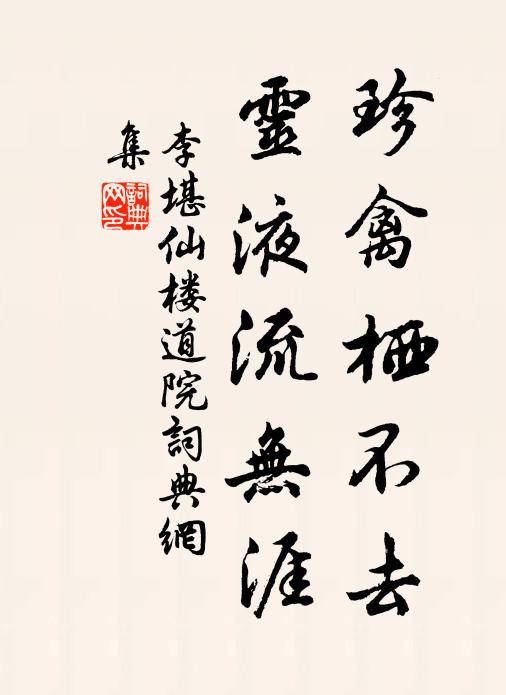 珍禽栖不去
靈液流無涯
李堪仙楼道院詞典網
集
詞典
网印